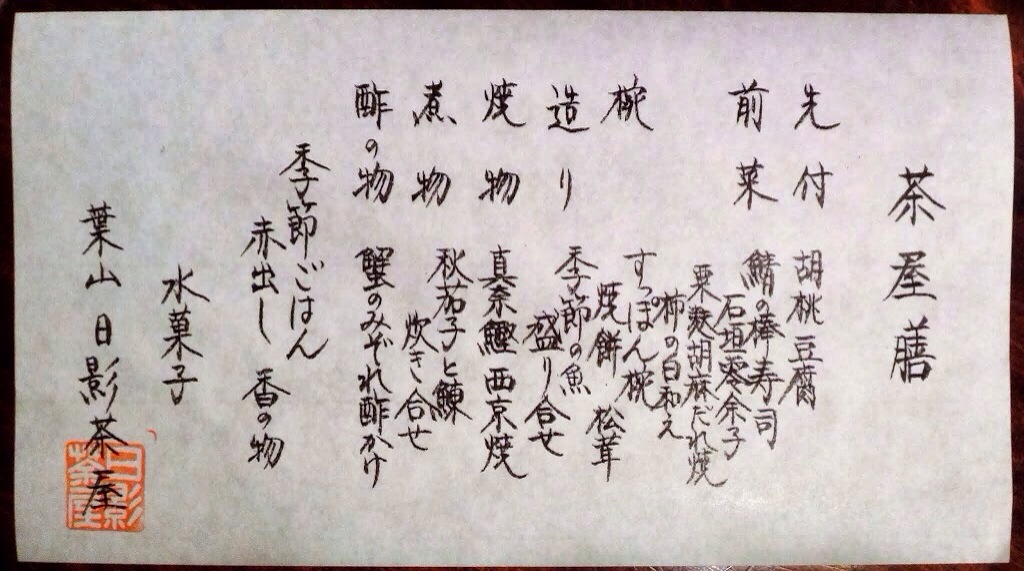 茶屋膳
先付 胡桃豆腐
前菜 鯖の棒寿司
石垣零余子
粟麩胡麻だれ焼
柿の白和え
椀 すっぽん椀
焼餅 松茸
造り 季節の魚
盛り合せ
焼物 真奈鰹西京焼
煮物 秋茄子と鰊
炊き合せ
酢の物 蟹のみぞれ酢かけ
季節ごはん
赤出し 香の物
水菓子
葉山 日影茶屋
日影
茶屋